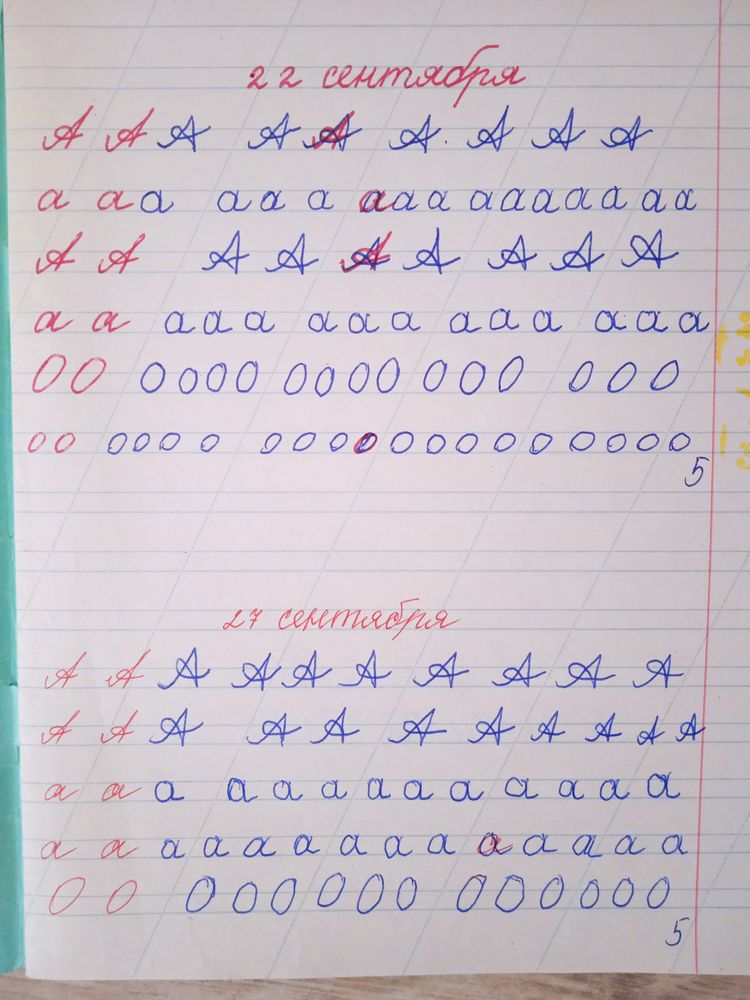 22 сентября
А А А А А А А А А
а а а а а а а а а а а а а а а а
А А А А А А А А А
а а а а а а а а а а а а а а
О О О О О О О О О О О О О О О О
о о о о о о о о о о о о о о о о о о о
5
27 сентября
А А А А А А А А А А
А А А А А А А А А А А
а а а а а а а а а а а а а
а а а а а а а а а а а а а а
О О О О О О О О О О О О О О
5